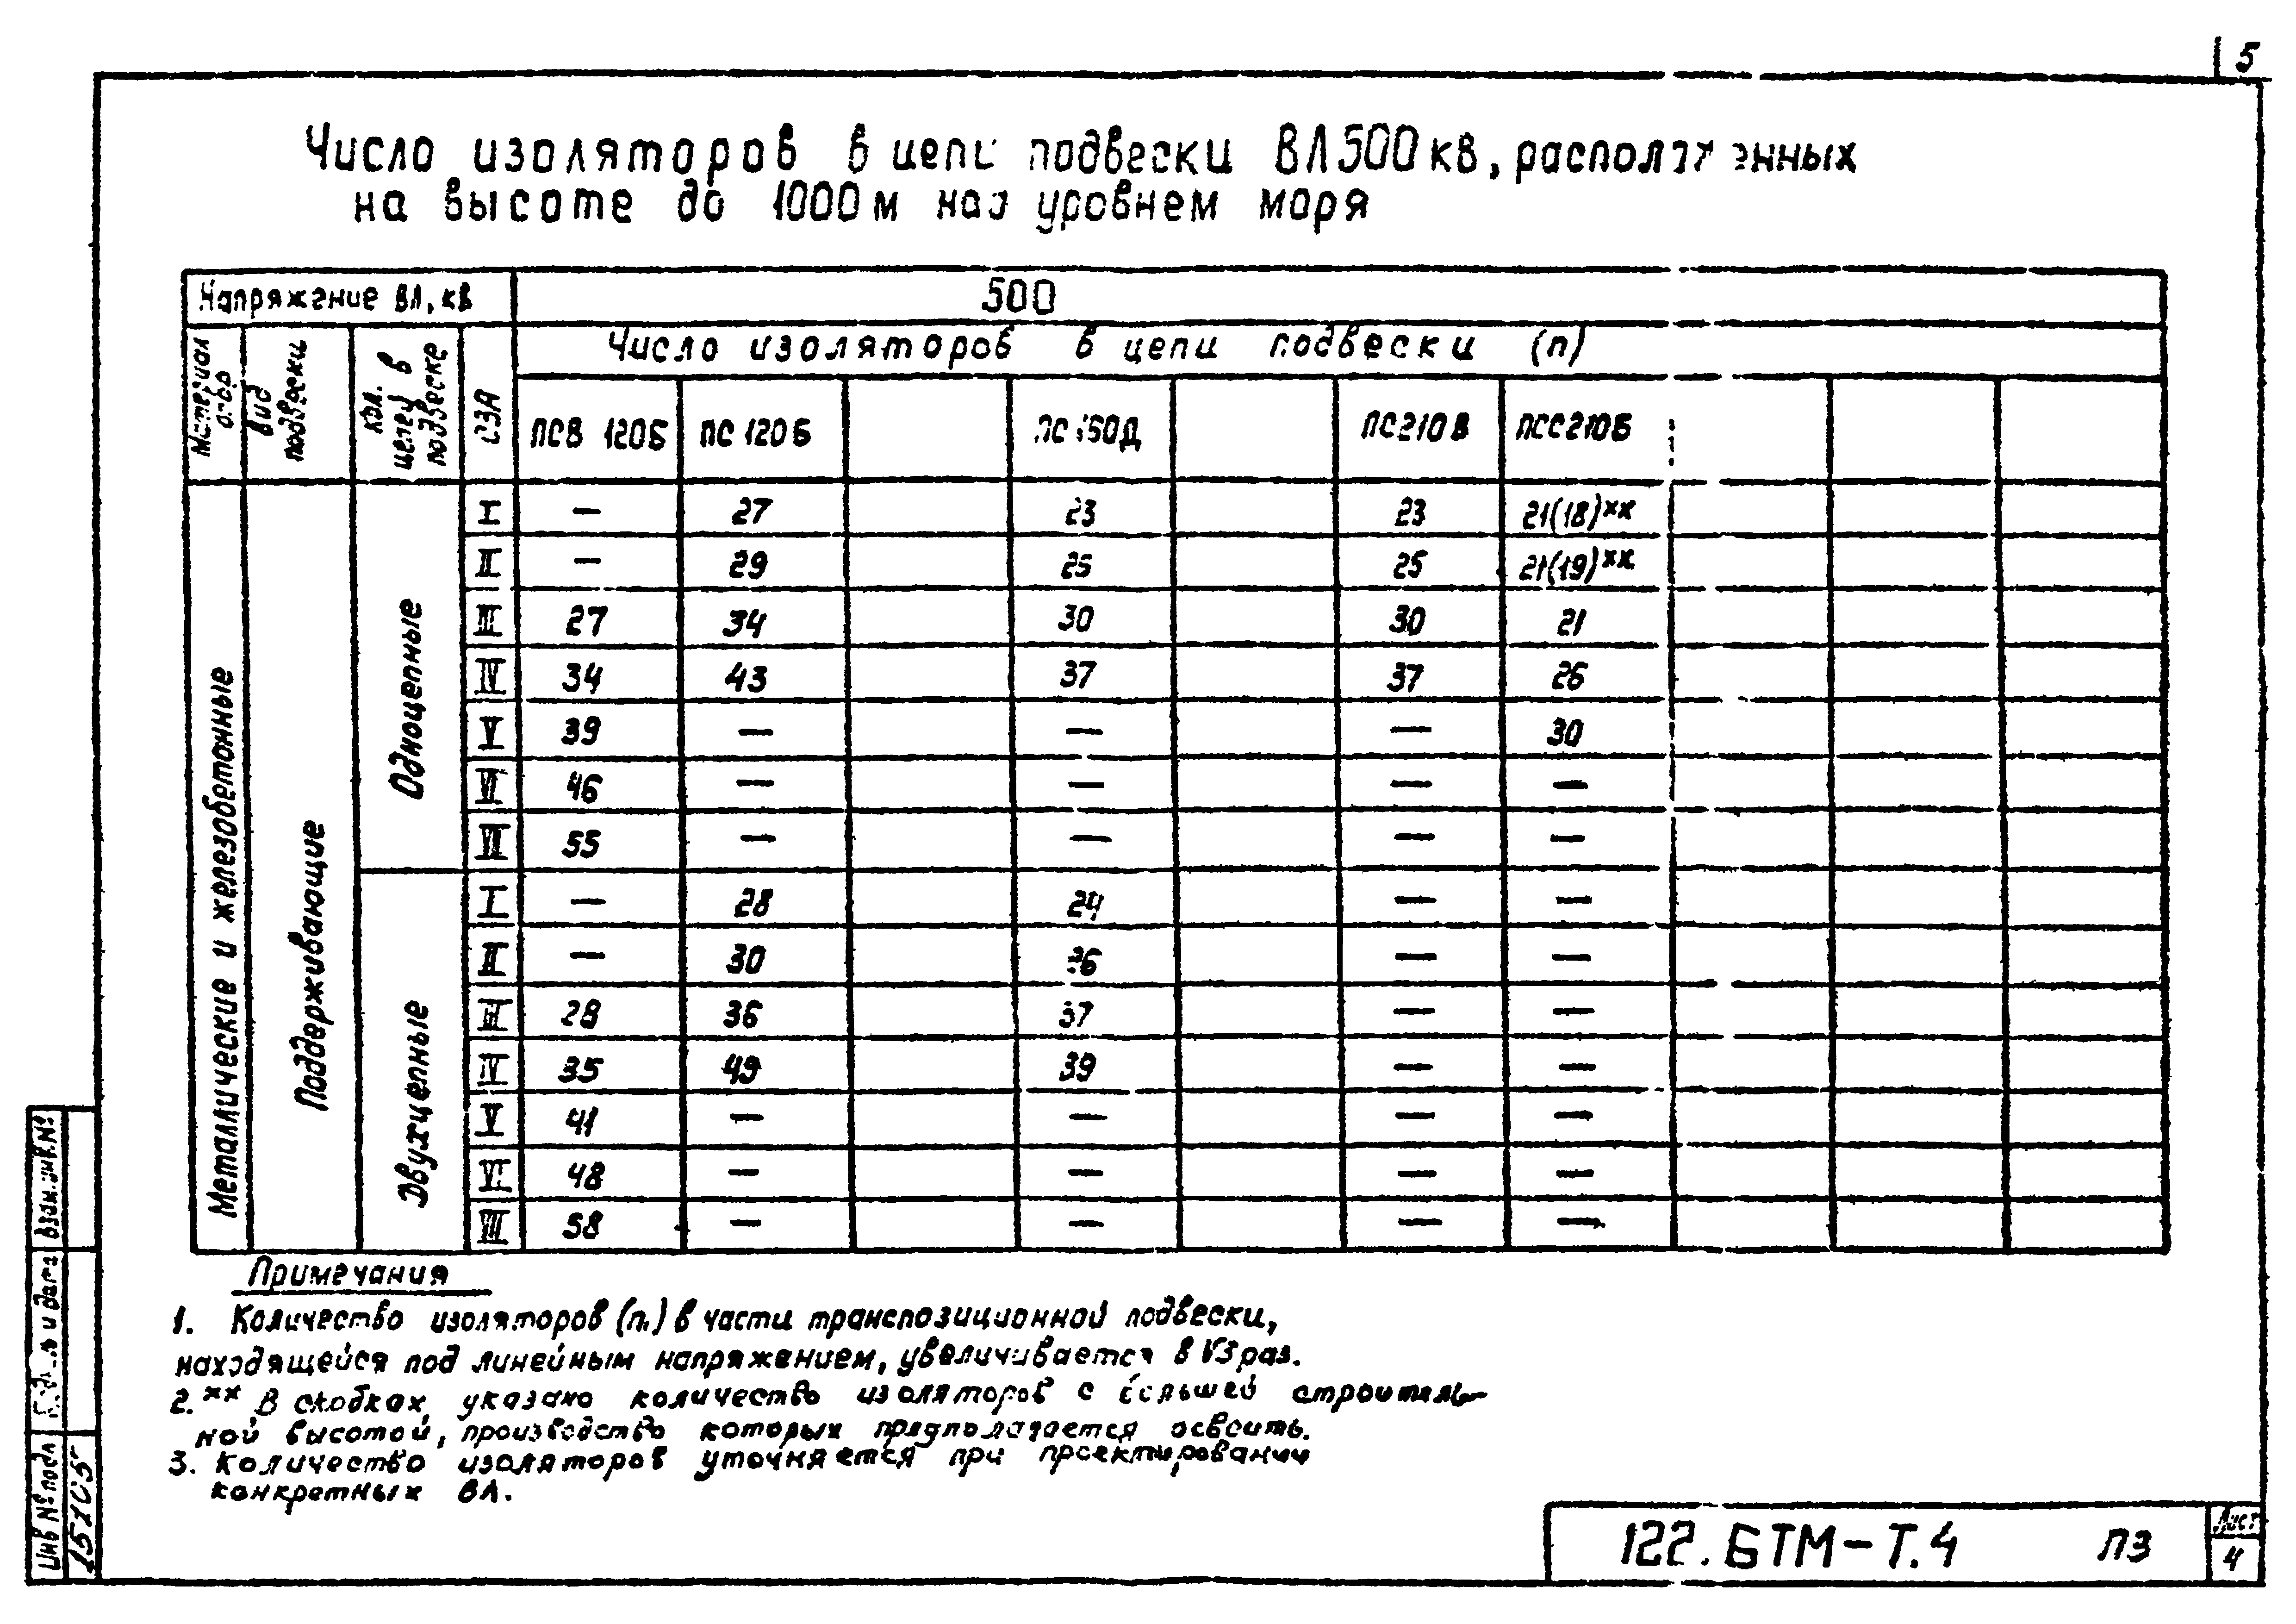 5
Число изоляторов в цепи подвески ВЛ 500 кв, расположенных
на высоте до 1000 м над уровнем моря
Напряжение ВЛ, кв 500
Материал опор
Вид подвески
Кол. цепей в подвеске
СЗА
Число изоляторов в цепи подвески (n)
ПСВ 120Б ПС 120Б ПС 160Д ПС210В ПСС210Б
Металлические и железобетонные
Поддерживающие
Одноцепные
I — 27 23 23 21(18)хх
II — 29 25 25 21(19)хх
III 27 34 30 30 21
IV 34 43 37 37 26
V 39 — — — 30
VI 46 — — — —
VII 55 — — — —
Двухцепные
I — 28 24 — —
II — 30 — —
III 28 36 37 — —
IV 35 49 39 — —
V 41 — — — —
VI 48 — — — —
VII 58 — — — —
Примечания
1. Количество изоляторов (n) в части транспозиционной подвески,
находящейся под линейным напряжением, увеличивается в √3 раз.
2. хх В скобках указано количество изоляторов с большей строитель-
ной высотой, производство которых предполагается освоить.
3. Количество изоляторов уточняется при проектировании
конкретных ВЛ.
Взам. инв. №
Подп. и дата
Инв № подл
122. БТМ-Т.4 ПЗ
Лист
4